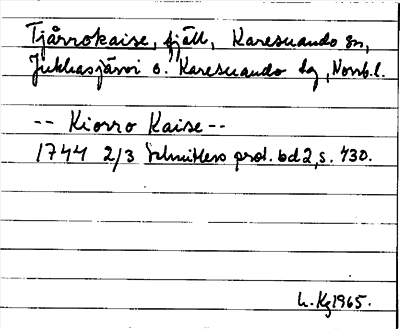 Tjårrokaise, fjäll, Karesuando sn,
Jukkasjärvi o. Karesuando lg, Norrb. l.
-- Kiorro Kaise --
1744 2/3 Schnitlers prot. bd 2, s. 430.
L. Kg 1965.